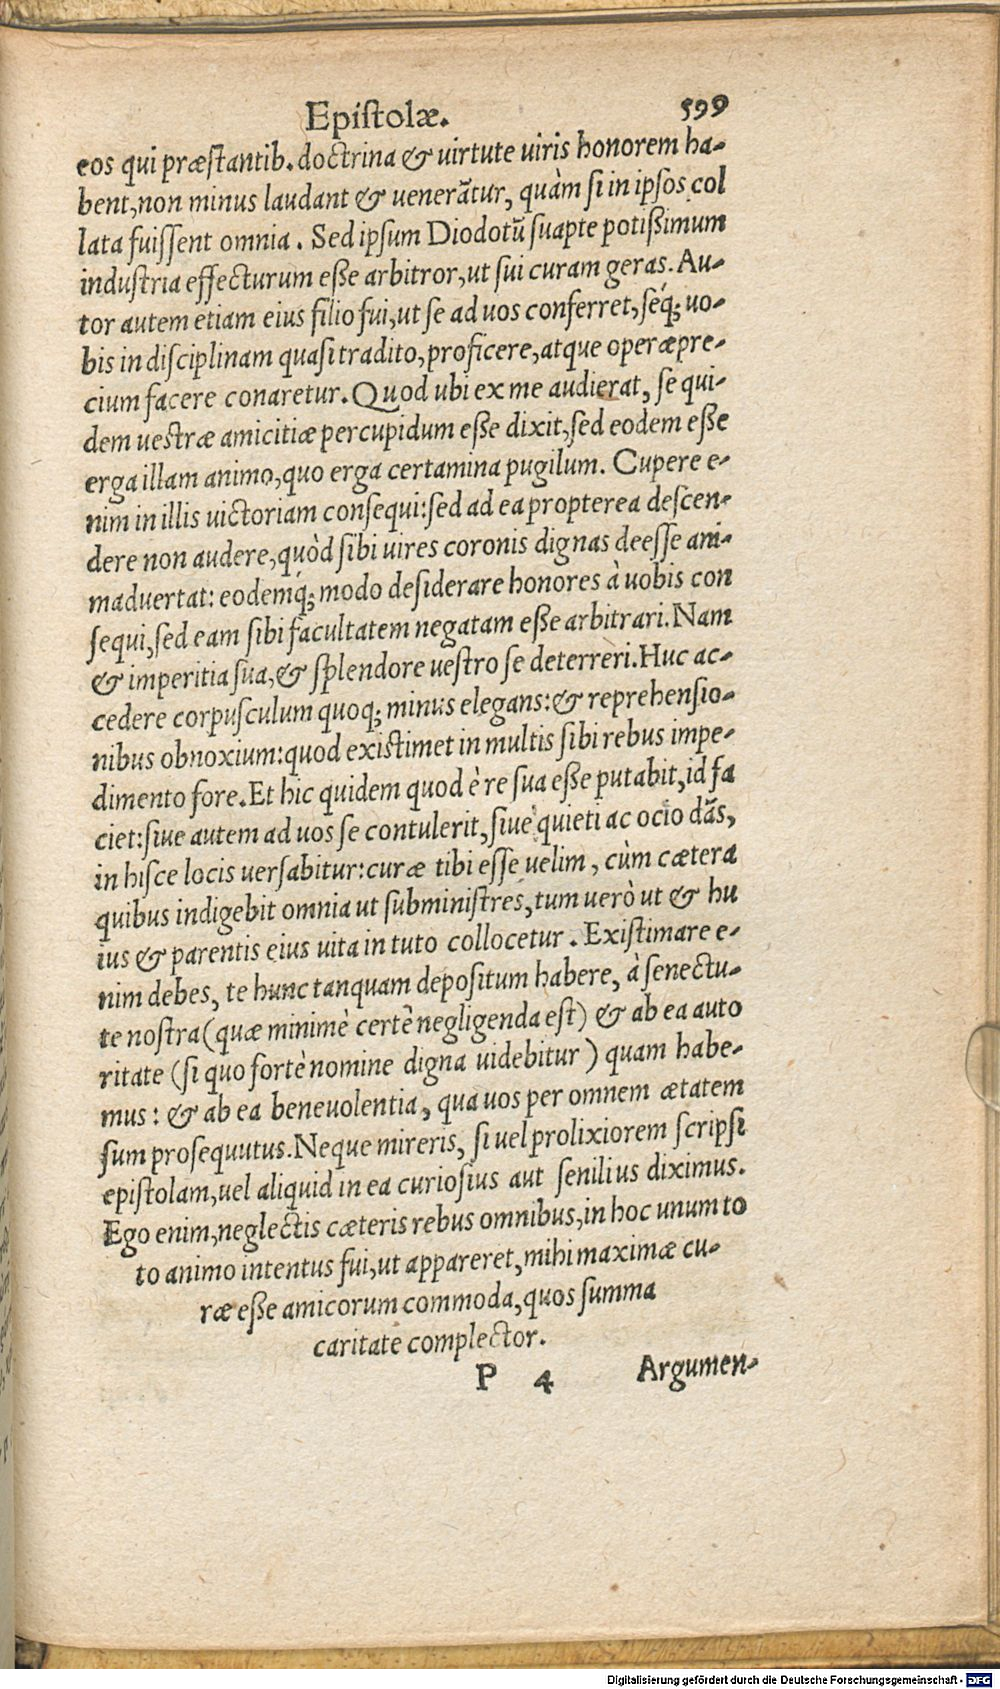 Epiſtolæ. 599
eos qui præſtantib. doctrina & uirtute uiris honorem ha-
bent, non minus laudant & venerãtur, quàm ſi in ipſos col
lata fuiſſent omnia. Sed ipſum Diodotũ ſuapte potißimum
induſtria effecturum eße arbitror, ut ſui curam geras. Au-
tor autem etiam eius filio fui, ut ſe ad uos conferret, ſéq; uo-
bis in diſciplinam quaſi tradito, proficere, atque operæpre-
cium facere conaretur. Quod ubi ex me audierat, ſe qui-
dem ueſtræ amicitiæ percupidum eße dixit, ſed eodem eße
erga illam animo, quo erga certamina pugilum. Cupere e-
nim in illis uictoriam conſequi: ſed ad ea propterea deſcen-
dere non audere, quòd ſibi uires coronis dignas deeſſe ani-
maduertat: eodemq́; modo deſiderare honores à uobis con
ſequi, ſed eam ſibi facultatem negatam eße arbitrari. Nam
& imperitia ſua, & ſplendore ueſtro ſe deterreri. Huc ac-
cedere corpuſculum quoq; minus elegans: & reprehenſio-
nibus obnoxium: quod exiſtimet in multis ſibi rebus impe-
dimento fore. Et hic quidem quod è re ſua eße putabit, id fa
ciet: ſiue autem ad uos ſe contulerit, ſiue quieti ac ocio dãs,
in hiſce locis uerſabitur: curæ tibi eſſe uelim, cùm cætera
quibus indigebit omnia ut ſubminiſtres, tum uerò ut & hu
ius & parentis eius uita in tuto collocetur. Exiſtimare e-
nim debes, te hunc tanquam depoſitum habere, à ſenectu-
te noſtra (quæ minimè certè negligenda eſt) & ab ea auto
ritate (ſi quo fortè nomine digna uidebitur) quam habe-
mus: & ab ea beneuolentia, qua uos per omnem ætatem
ſum proſequutus. Neque mireris, ſi uel prolixiorem ſcripſi
epiſtolam, uel aliquid in ea curioſius aut ſenilius diximus.
Ego enim, neglectis cæteris rebus omnibus, in hoc unum to
to animo intentus fui, ut appareret, mihi maximæ cu-
ræ eße amicorum commoda, quos ſumma
caritate complector.
P 4 Argumen-
Digitalisierung gefördert durch die Deutsche Forschungsgemeinschaft - DFG